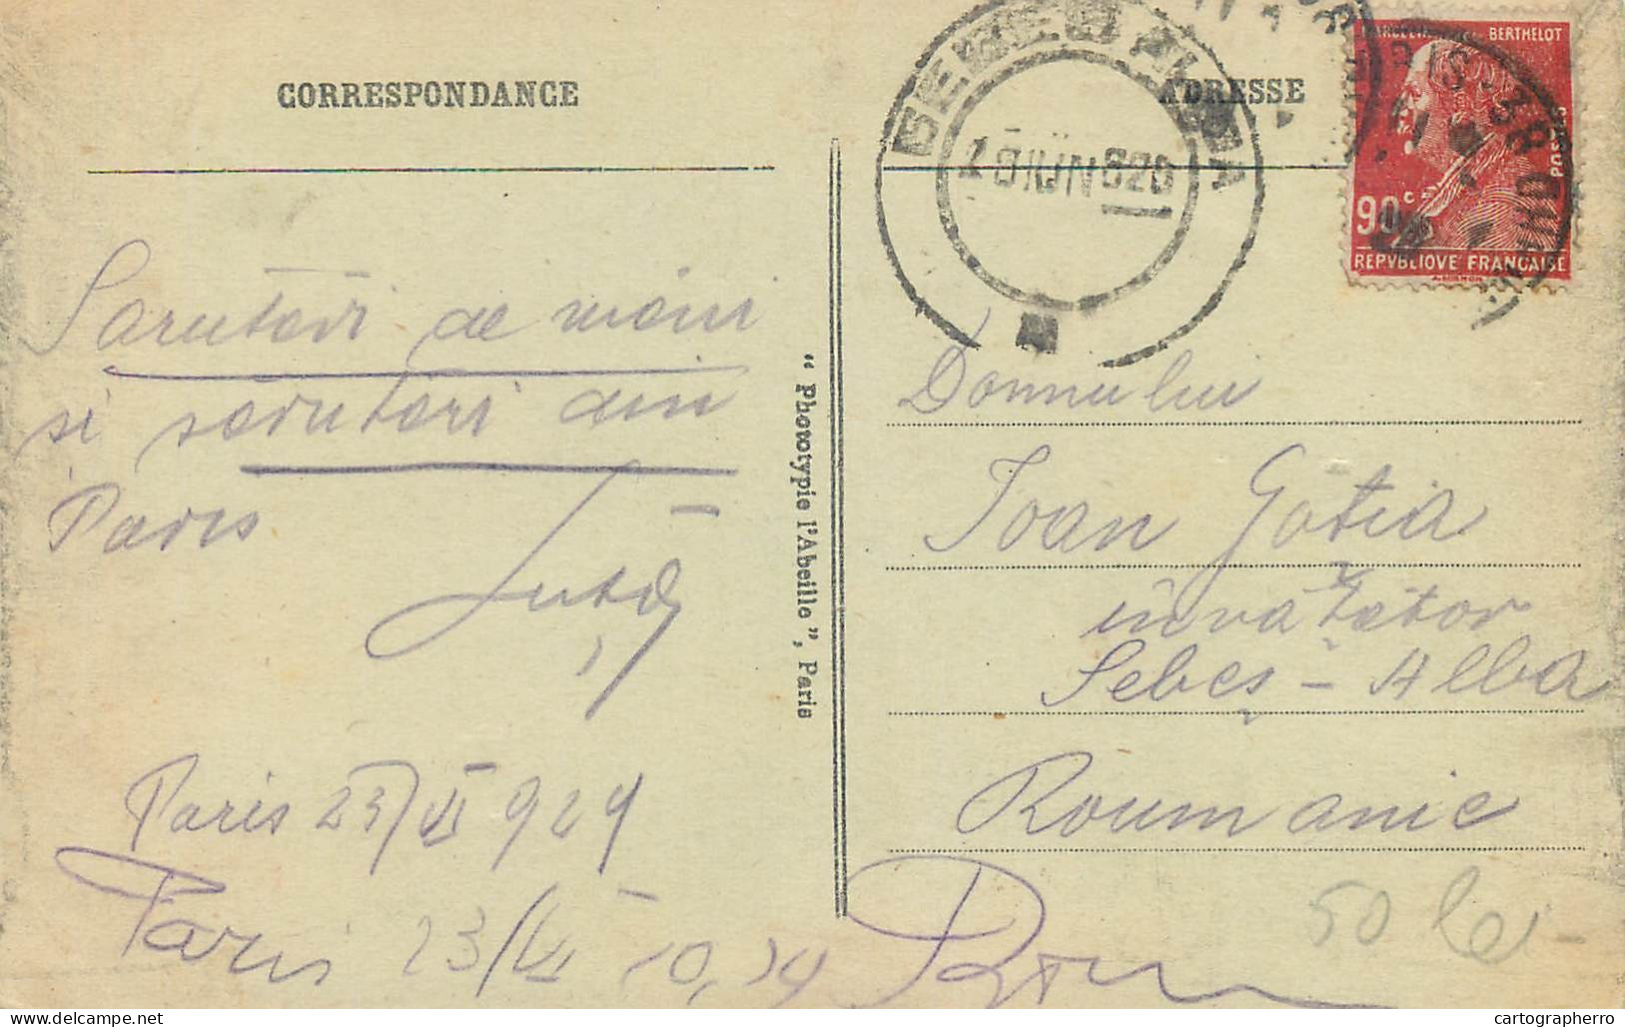 CORRESPONDANCE
Sarutări de mâni
si sărutări din
Paris
Paris 23/VI 929
Paris 23/VI
"Phototypie l'Abeille", Paris
ADRESSE
SEBEȘ ALBA
BERTHELOT
POSTES
90c
REPVBLIQVE FRANCAISE
Domnului
Ioan Gotia
invățător
Sebeș - Alba
Roumanie
50 lei
delcampe.net
cartographerro